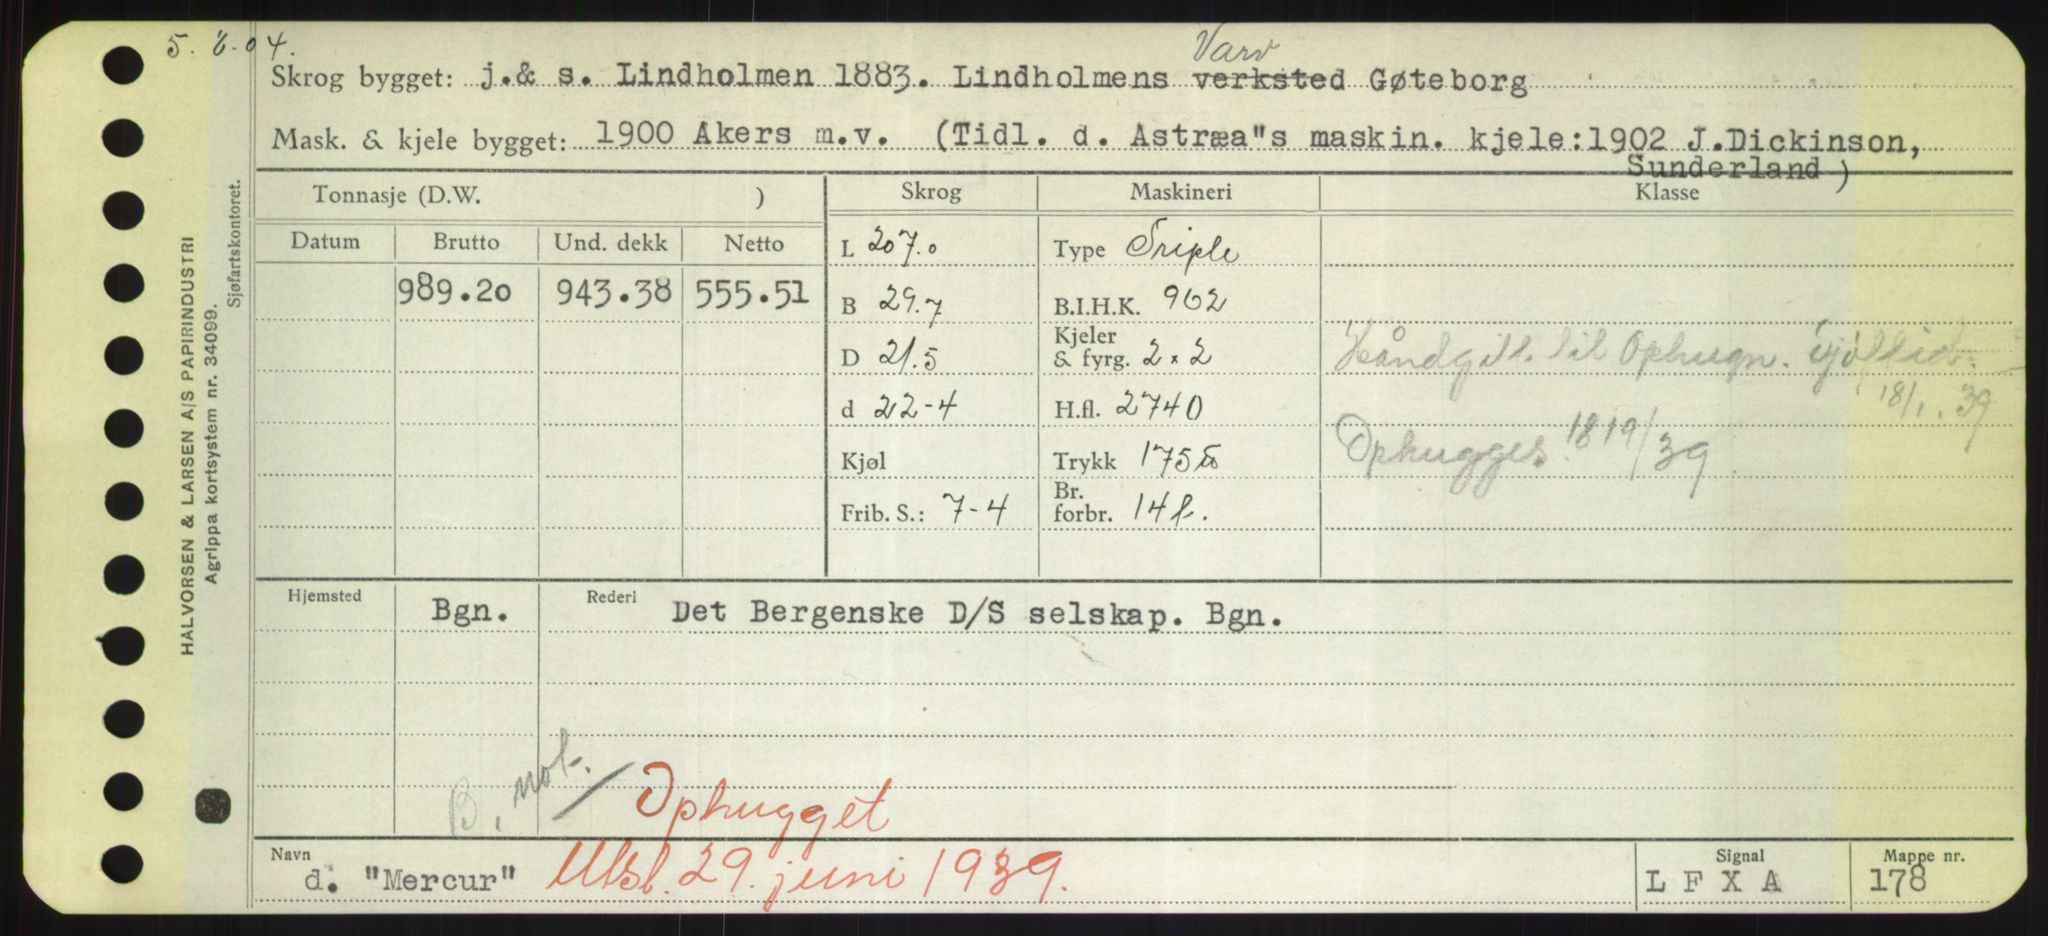 5. 6.04.
Varv
Skrog bygget: j.& s. Lindholmen 1883. Lindholmens verksted Gøteborg
Mask. & kjele bygget: 1900 Akers m.v. (Tidl. d. Astræa"s maskin. kjele:1902 J.Dickinson,
Sunderland)
Tonnasje (D.W. ) Skrog Maskineri Klasse
Datum Brutto Und. dekk Netto L 207.0 Type Triple
989.20 943.38 555.51 B 29.7 B.I.H.K. 962
D 21.5 Kjeler & fyrg. 2 x 2 til Ophugn.
18/1. 39
d 22-4 H.fl. 2740
Kjøl Trykk 175 Ophugges 39
Frib. S.: 7-4 Br. forbr. 14
Hjemsted Bgn. Rederi Det Bergenske D/S selskap. Bgn.
B. not. Ophugget
Navn d. "Mercur" Utsl. 29. juni 1939. Signal LFXA Mappe nr. 178
HALVORSEN & LARSEN A/S PAPIRINDUSTRI
Agrippa kortsystem nr. 34099.
Sjøfartskontoret.